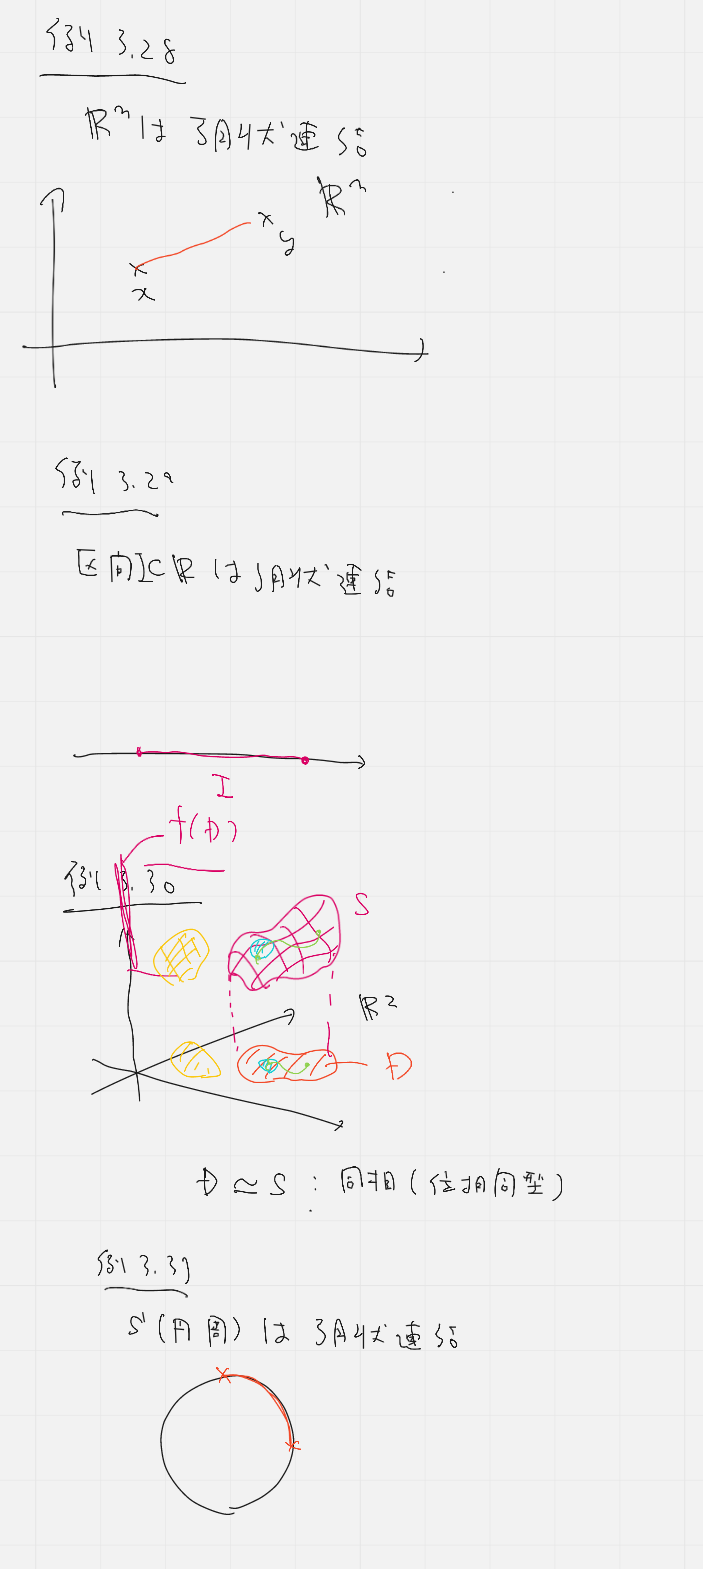 例 3.28
ℝⁿは 弧状連結
ℝⁿ
y
x
例 3.29
区間 I⊂ℝ は弧状連結
I
f(D)
例 3.30
S
ℝ²
D
D ≃ S : 同相(位相同型)
例 3.31
S¹(円周) は 弧状連結